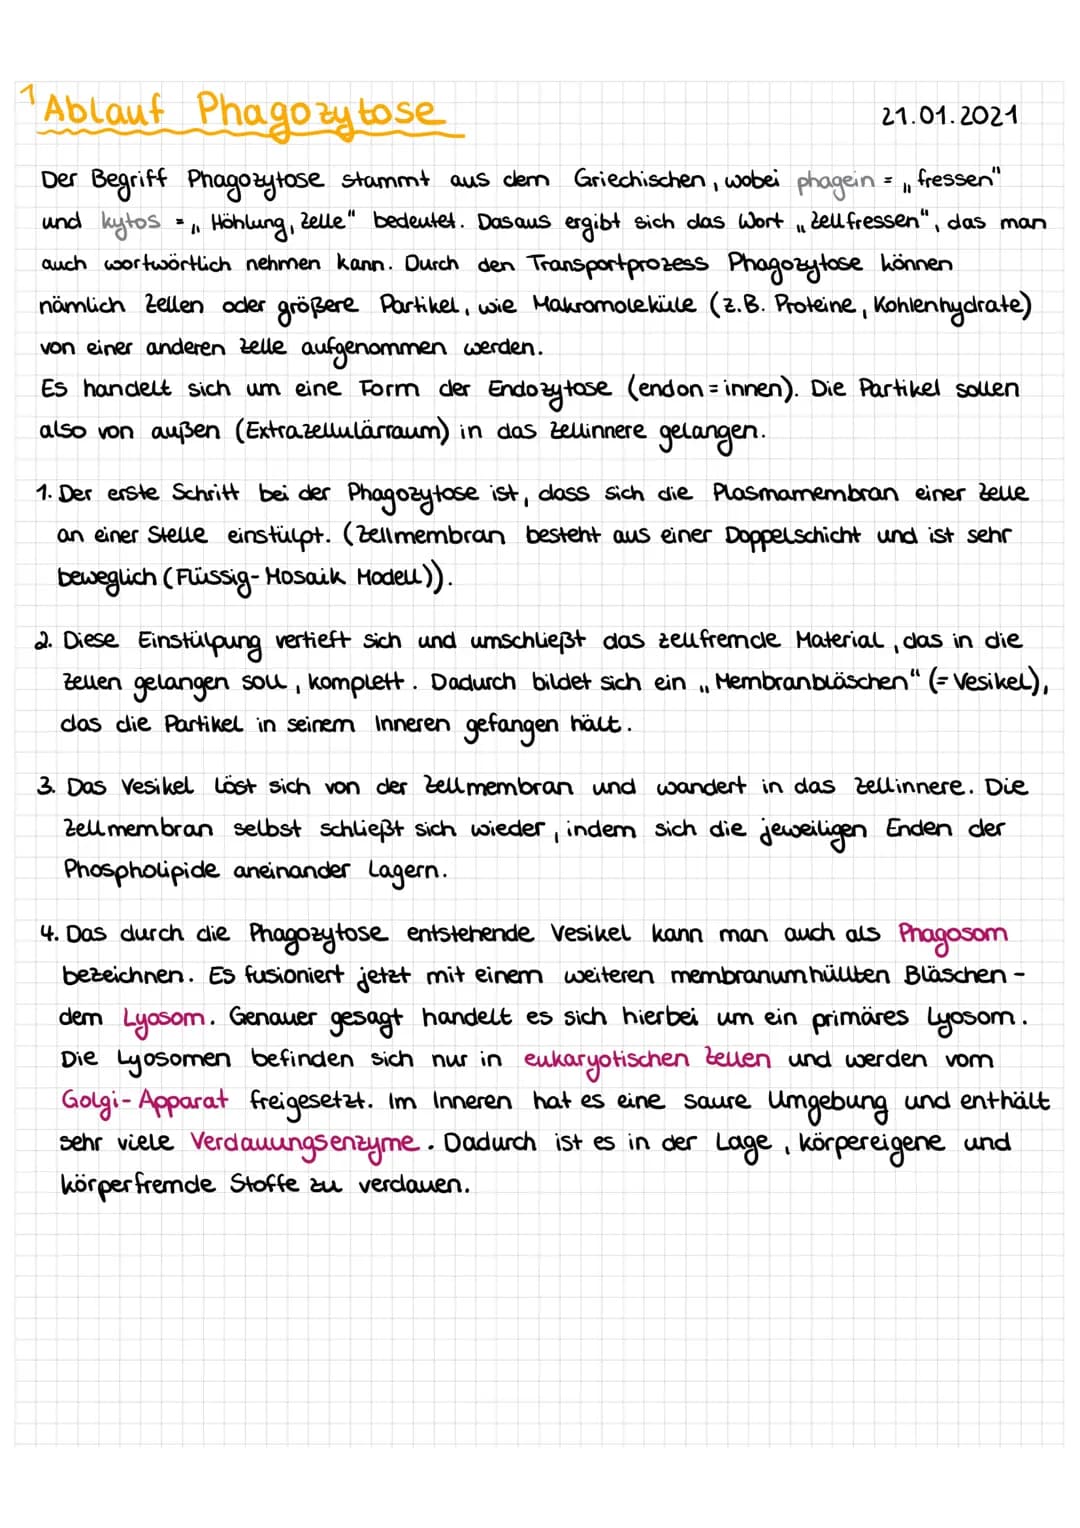 1 Ablauf Phagozytose
21.01.2021
Der Begriff Phagozytose stammt aus dem Griechischen, wobei phagein = „fressen"
und kytos = „Höhlung, Zelle" bedeutet. Dasaus ergibt sich das Wort „Zellfressen", das man
auch wortwörtlich nehmen kann. Durch den Transportprozess Phagozytose können
nämlich Zellen oder größere Partikel, wie Makromoleküle (z.B. Proteine, Kohlenhydrate)
von einer anderen Zelle aufgenommen werden.
Es handelt sich um eine Form der Endozytose (endon = innen). Die Partikel sollen
also von außen (Extrazellulärraum) in das Zellinnere gelangen.
1. Der erste Schritt bei der Phagozytose ist, dass sich die Plasmamembran einer Zelle
an einer Stelle einstülpt. (Zellmembran besteht aus einer Doppelschicht und ist sehr
beweglich (Flüssig-Mosaik Modell)).
2. Diese Einstülpung vertieft sich und umschließt das zellfremde Material, das in die
Zellen gelangen soll, komplett. Dadurch bildet sich ein „Membranbläschen" (= Vesikel),
das die Partikel in seinem Inneren gefangen hält.
3. Das Vesikel löst sich von der Zellmembran und wandert in das Zellinnere. Die
Zellmembran selbst schließt sich wieder, indem sich die jeweiligen Enden der
Phospholipide aneinander lagern.
4. Das durch die Phagozytose entstehende Vesikel kann man auch als Phagosom
bezeichnen. Es fusioniert jetzt mit einem weiteren membranumhüllten Bläschen -
dem Lyosom. Genauer gesagt handelt es sich hierbei um ein primäres Lyosom.
Die Lyosomen befinden sich nur in eukaryotischen Zellen und werden vom
Golgi-Apparat freigesetzt. Im Inneren hat es eine saure Umgebung und enthält
sehr viele Verdauungsenzyme. Dadurch ist es in der Lage, körpereigene und
körperfremde Stoffe zu verdauen.